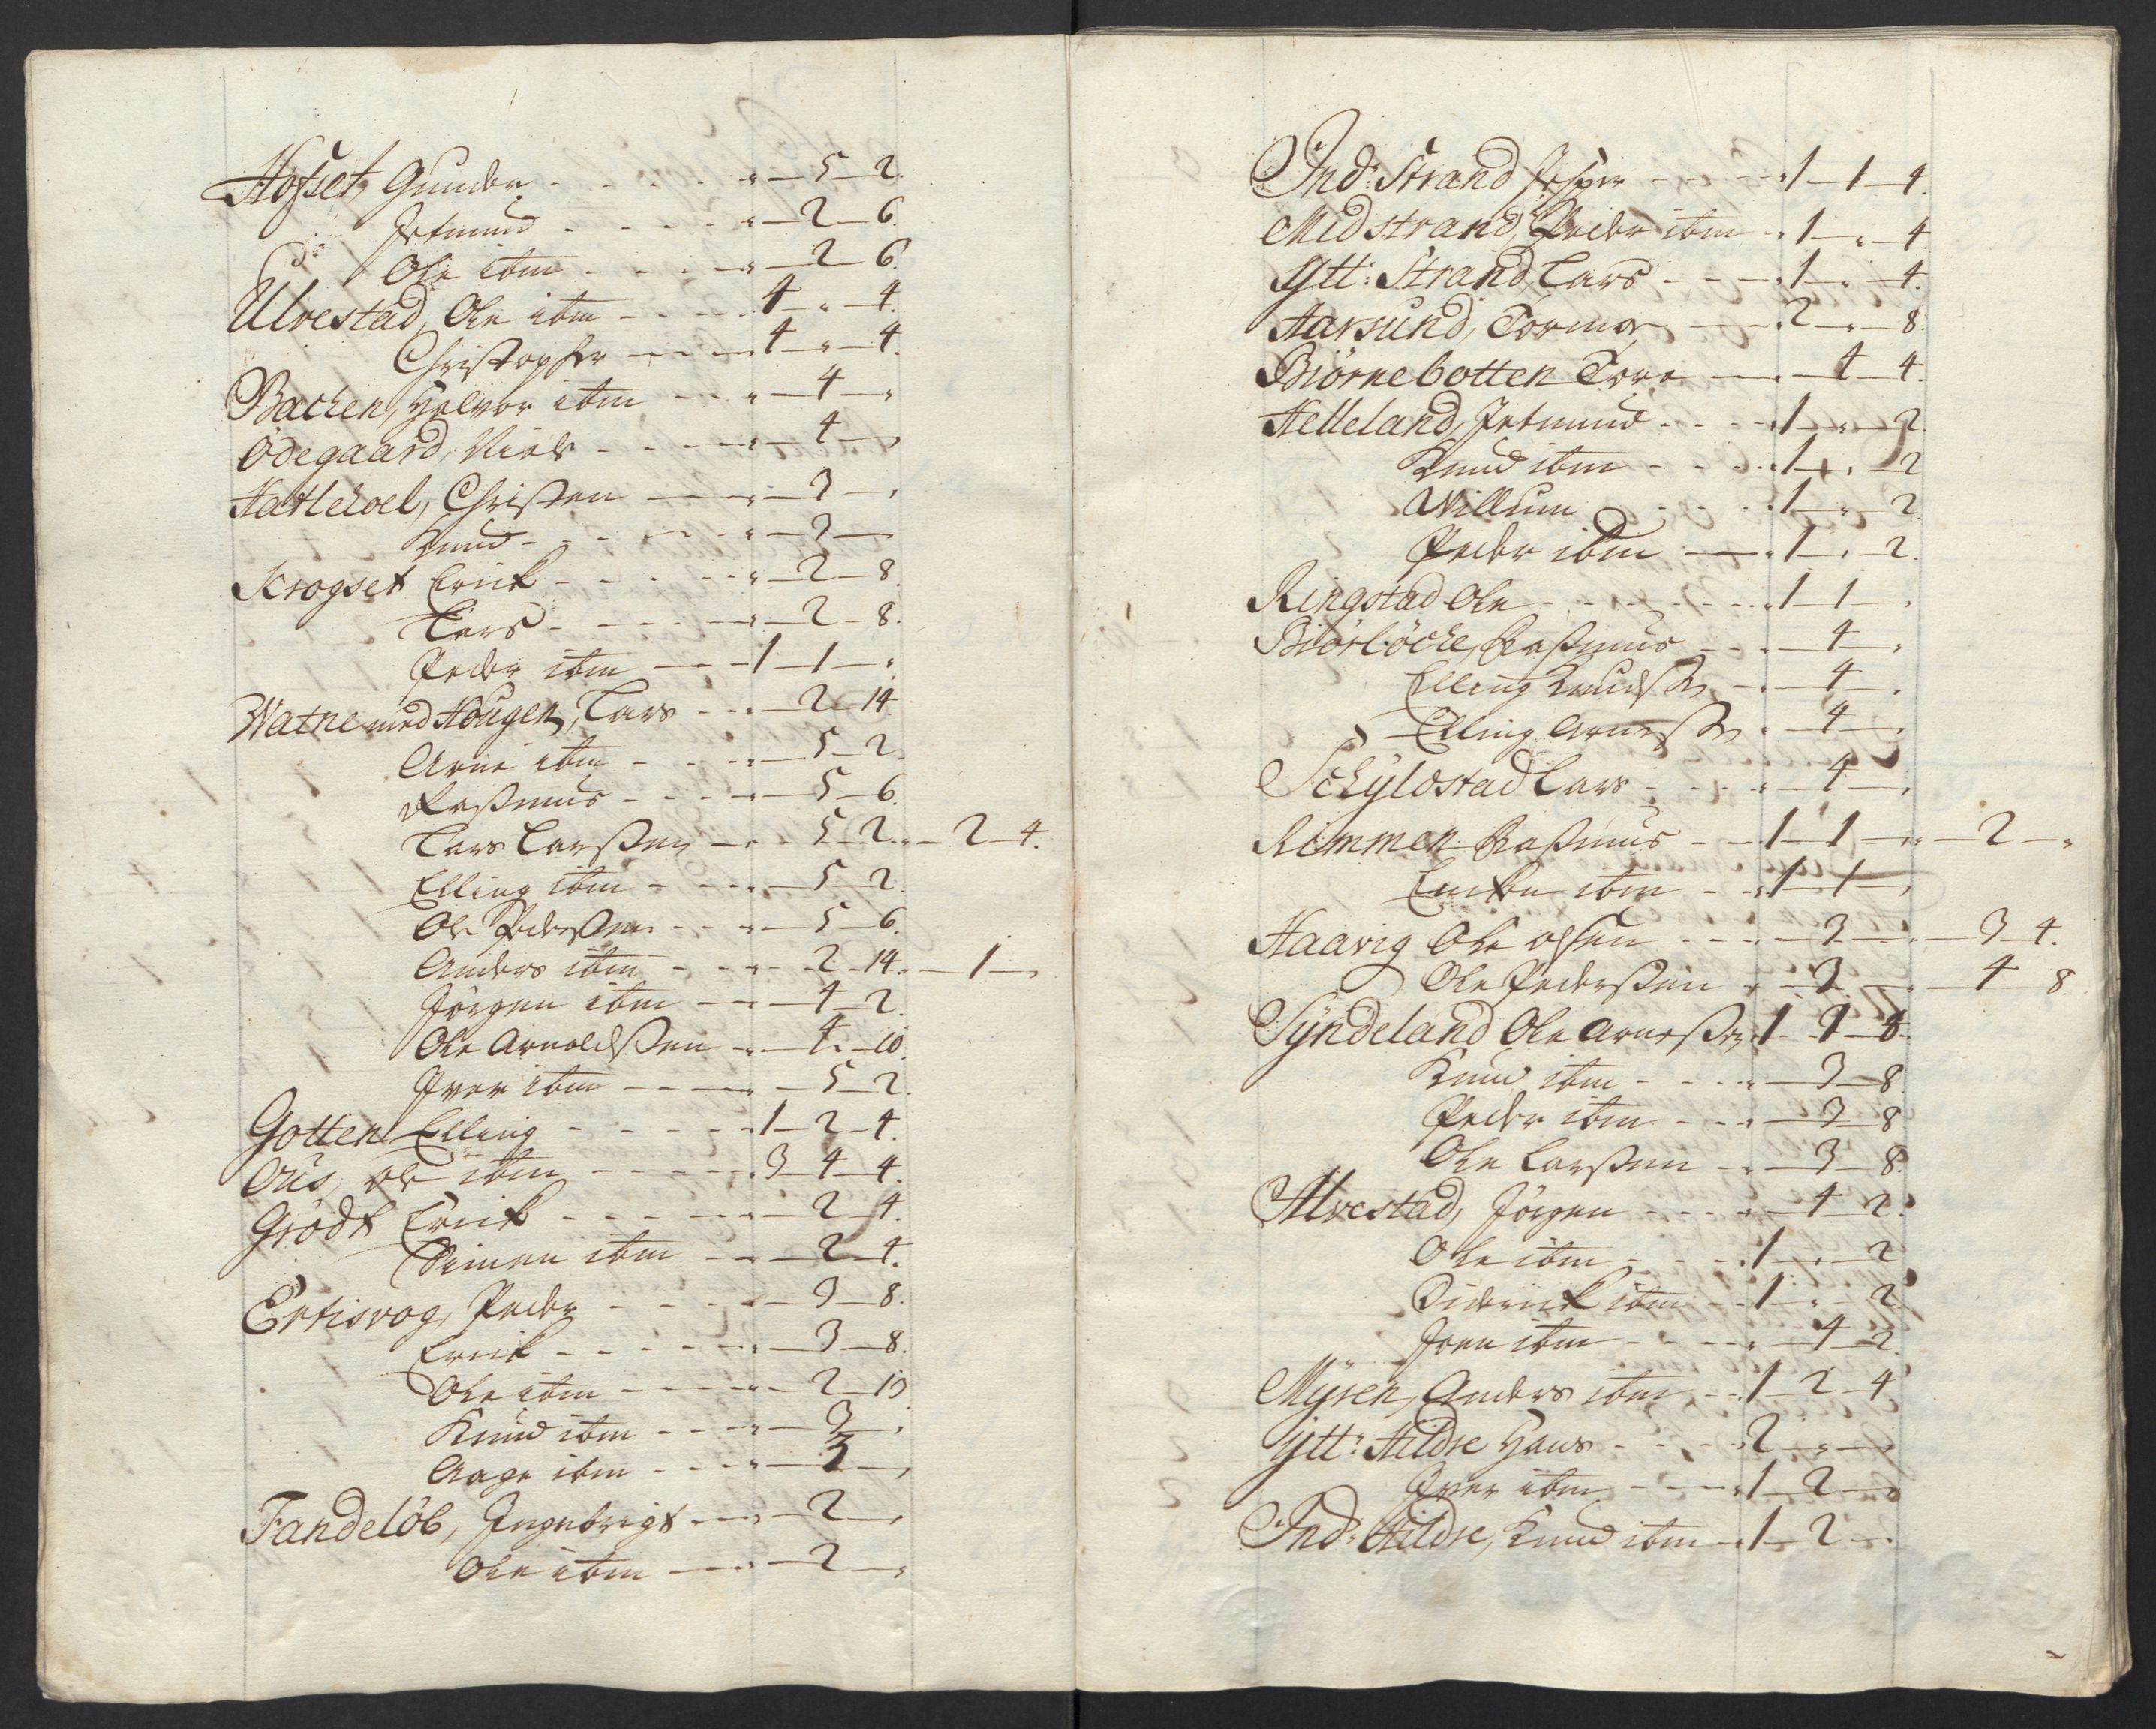 Hofset, Gunder - - - - " - 5 - 2.
Jetmund - - - - " - 2 - 6.
Ole ibm - - - - " - 2 - 6.
Ulvestad, Ole ibm - - - - 4 - " - 4.
Christopher - - - 4 - " - 4.
Backen, Halvor ibm - - " - 4 - "
Ödegaard, Niels - - - - " - 4 - "
Hatlehoel, Christen - - - " - 3 - "
Knud - - - - " - 3 - "
Krogset Erick - - - - " - 2 - 8.
Lars - - - - " - 2 - 8.
Peder ibm - - - 1 - 1 - "
Watne med Hougen, Lars - - " - 2 - 14.
Arne ibm - - - " - 5 - 2.
Rasmus - - - - " - 5 - 6.
Lars Larßen - - " - 5 - 2. " - 2 - 4.
Elling ibm - - - " - 5 - 2.
Ole Pederßen - - - " - 5 - 6.
Anders ibm - - - " - 2 - 14. " - 1 - "
Jörgen ibm - - - " - 4 - 2.
Ole Arnoldßen - " - 4 - 10.
Iver ibm - - - " - 5 - 2.
Gotten Elling - - - - 1 - 2 - 4.
Ous, Ole ibm - - - - 3 - 4 - 4.
Grödt Erick - - - - " - 2 - 4.
Simen ibm - - " - 2 - 4.
Ertisvog, Peder - - - " - 3 - 8.
Erick - - - - " - 3 - 8.
Ole ibm - - - " - 2 - 13
Knud ibm - - - " - 3 - "
Aage ibm - - - " - 3 - "
Fandelöb, Ingebrigt - - " - 2 - "
Ole ibm - - " - 2 - "
Ind: Strand Jesper - - - 1 - 1 - 4.
Midstrand, Peder ibm - 1 - " - 4.
Ytt: Strand, Lars - - - 1 - " - 4.
Haksund, Tormor - - 2 - " - 8.
Biörnebotten Tore - - " - 4 - 4.
Helleland, Jetmund - - - 1 - " - 2.
Knud ibm - - - 1 - " - 2
Willum - - - 1 - " - 2
Peder ibm - - 1 - " - 2.
Ringstad Ole - - - - - 1 - 1 - "
Biörlöche, Rasmus - - " - 4 - "
Elling Knudßn - " - 4 - "
Elling Arneßn " - 4 - "
Schyldstad Lars - - - " - 4 - "
Remmen Rasmus - - 1 - 1 - " " - 2 - "
Encken ibm - - 1 - 1 - "
Haavig Ole Olsen - - - " - 3 - " " - 3 - 4.
Ole Pederßen " - 3 - " " - 4 - 8
Syndeland Ole Arneßn 1 - 1 - 8.
Knud ibm - - - " - 3 - 8.
Peder ibm - - - " - 3 - 8
Ole Larßen - " - 3 - 8.
Alvestad, Jörgen - - - - " - 4 - 2.
Ole ibm - - - 1 - " - 2
Diderick ibm - 1 - " - 2
Joen ibm - - - " - 4 - 2.
Myren, Anders ibm - - 1 - 2 - 4
Ytt: Hildre Hans - - - - 2 - " - "
Iver ibm - - - 1 - 2 - "
Ind: Hildre, Knud ibm - 1 - 2 - "